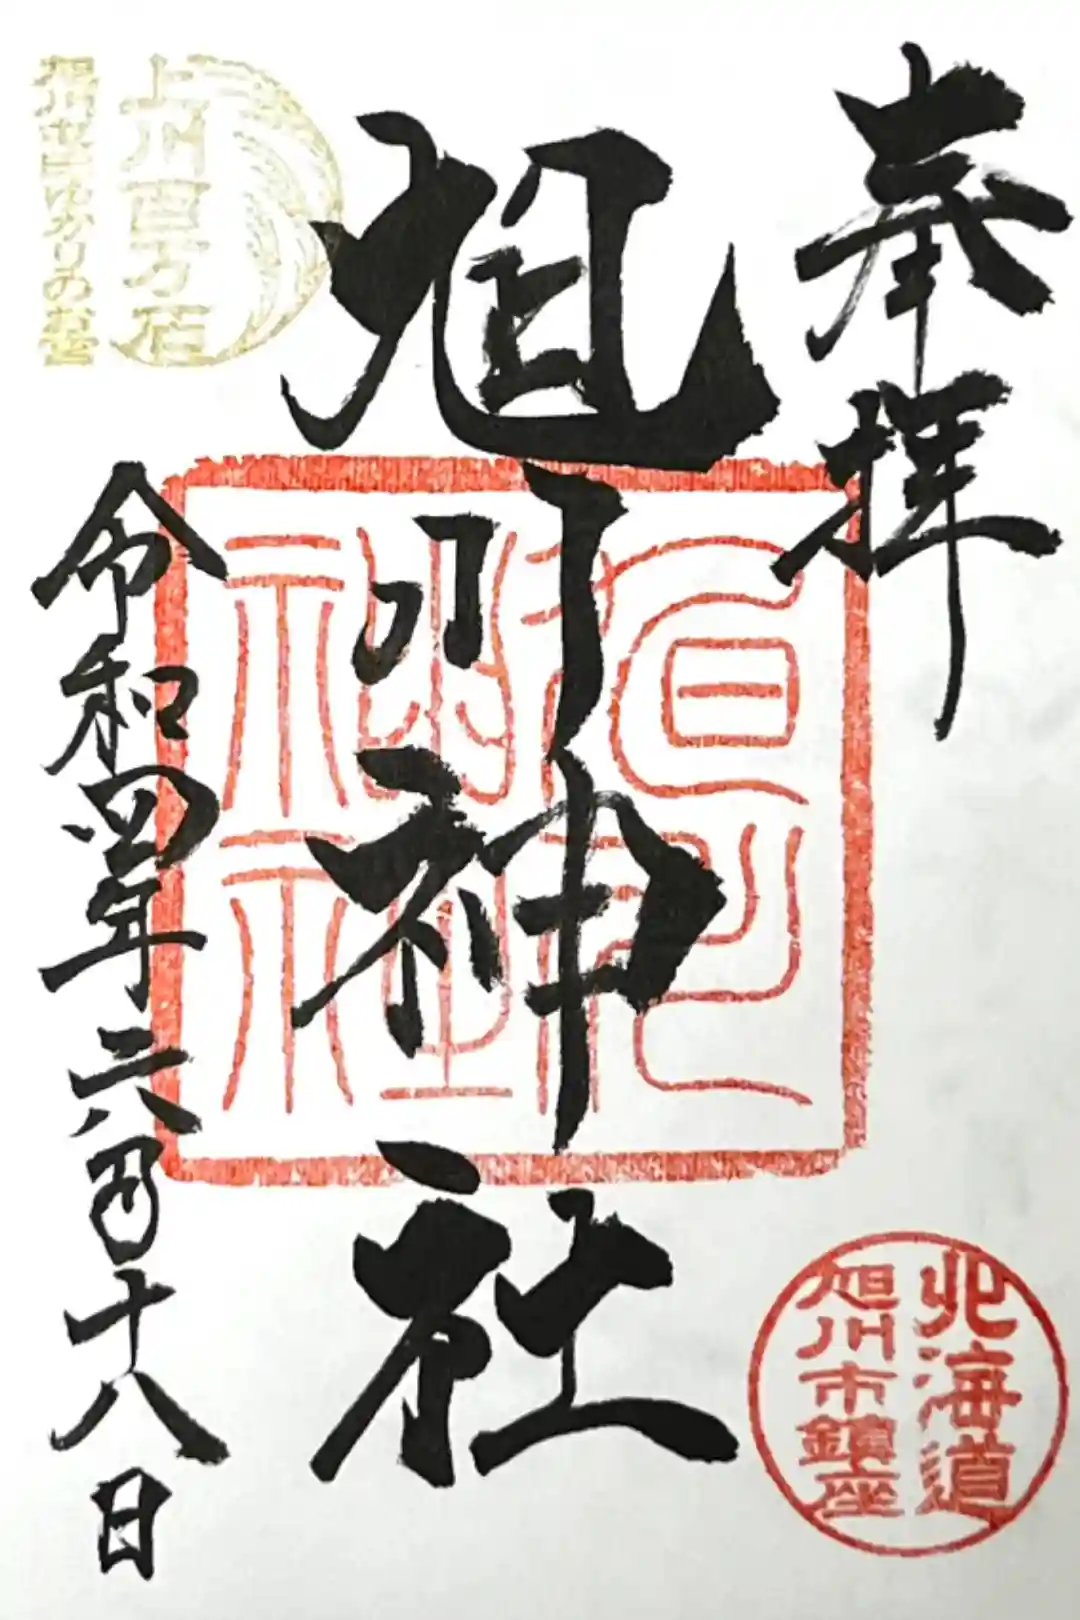 奉拝
旭川神社
旭川
神社
令和四年六月十八日
上川百万石
旭川 ゆかりのお宮
北海道
旭川市鎮座